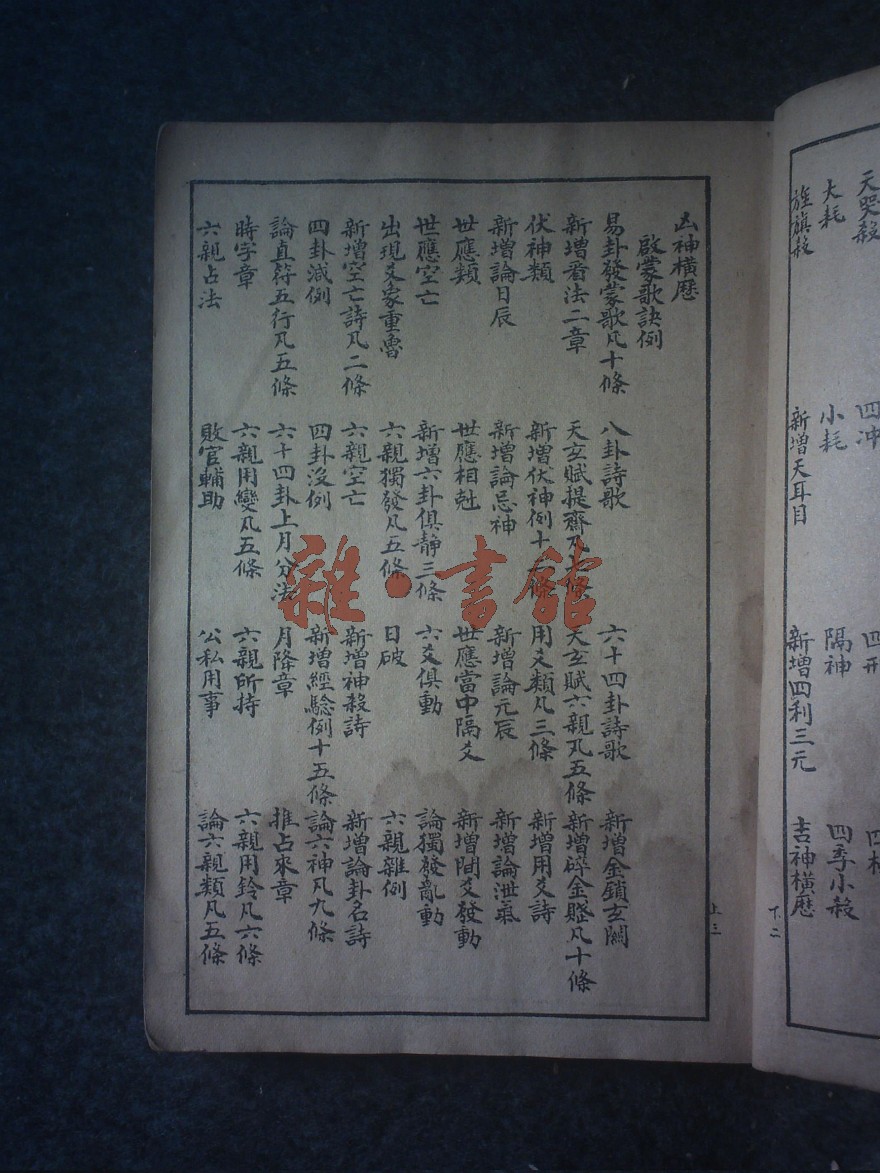 天哭殺 四冲
大耗 小耗 隔神 四季小殺
旌旗殺 新增天耳目 新增四利三元 吉神横歷
下二
上三
凶神横歷
啟蒙歌訣例
易卦發蒙歌凡十條 八卦詩歌 六十四卦詩歌 新增金鎖玄關
新增看法二章 天玄賦提齋凡 條 天玄賦六親凡五條 新增碎金賤凡十條
伏神類 新增伏神例十 條 用爻類凡三條 新增用爻詩
新增論日辰 新增論忌神 新增論元辰 新增論泄氣
世應類 世應相尅 世應當中隔爻 新增間爻發動
世應空亡 新增六卦俱静三條 六爻俱動 論獨發亂動
出現爻象重魯 六親獨發凡五條 日破 六親雜例
新增空亡詩凡二條 六親空亡 新增神殺詩 新增論卦名詩
四卦滅例 四卦沒例 新增經驗例十五條 論六神凡九條
論直符五行凡五條 六十四卦上月分法 月降章 推占來章
時字章 六親用變凡五條 六親所持 六親用鈴凡六條
六親占法 敗官輔助 公私用事 論六親類凡五條
雜·書館